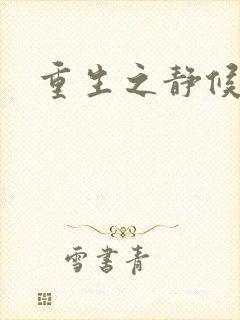 重生之静候
雪書青